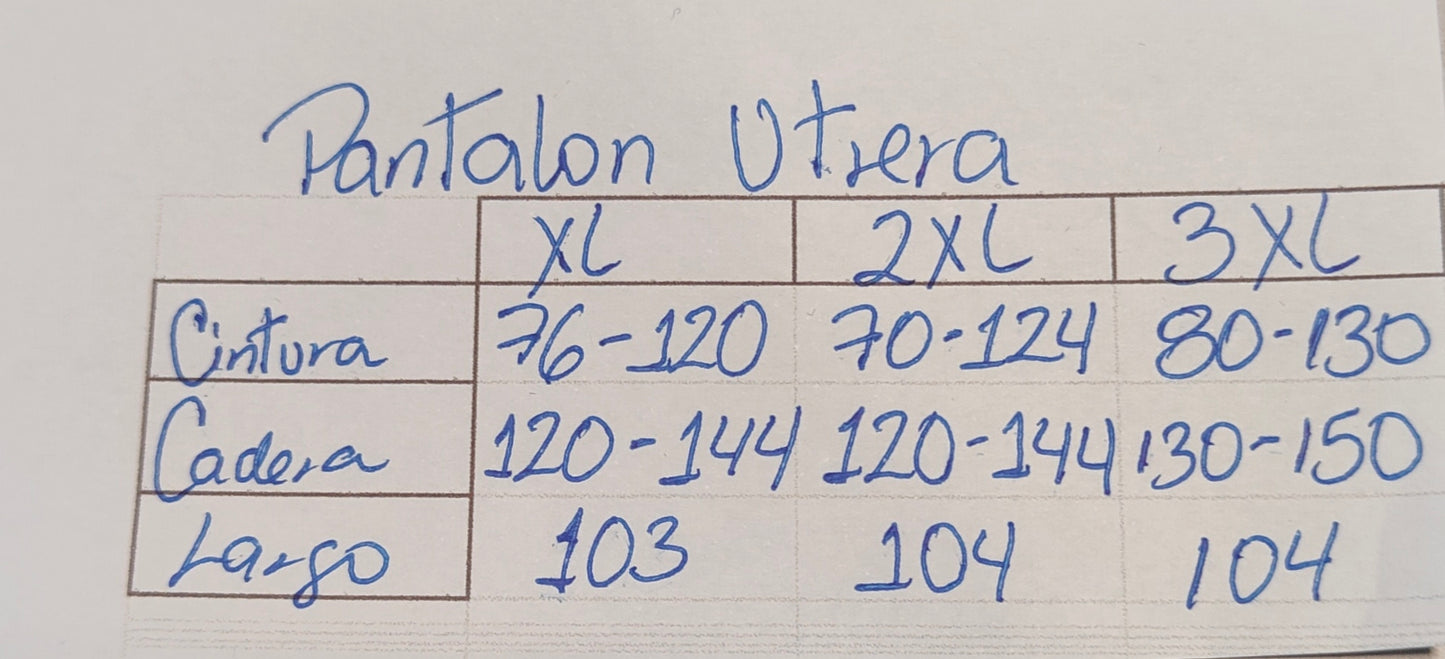 Pantalon Utrera
XL 2XL 3XL
Cintura 76-120 70-124 80-130
Cadera 120-144 120-144 130-150
Largo 103 104 104